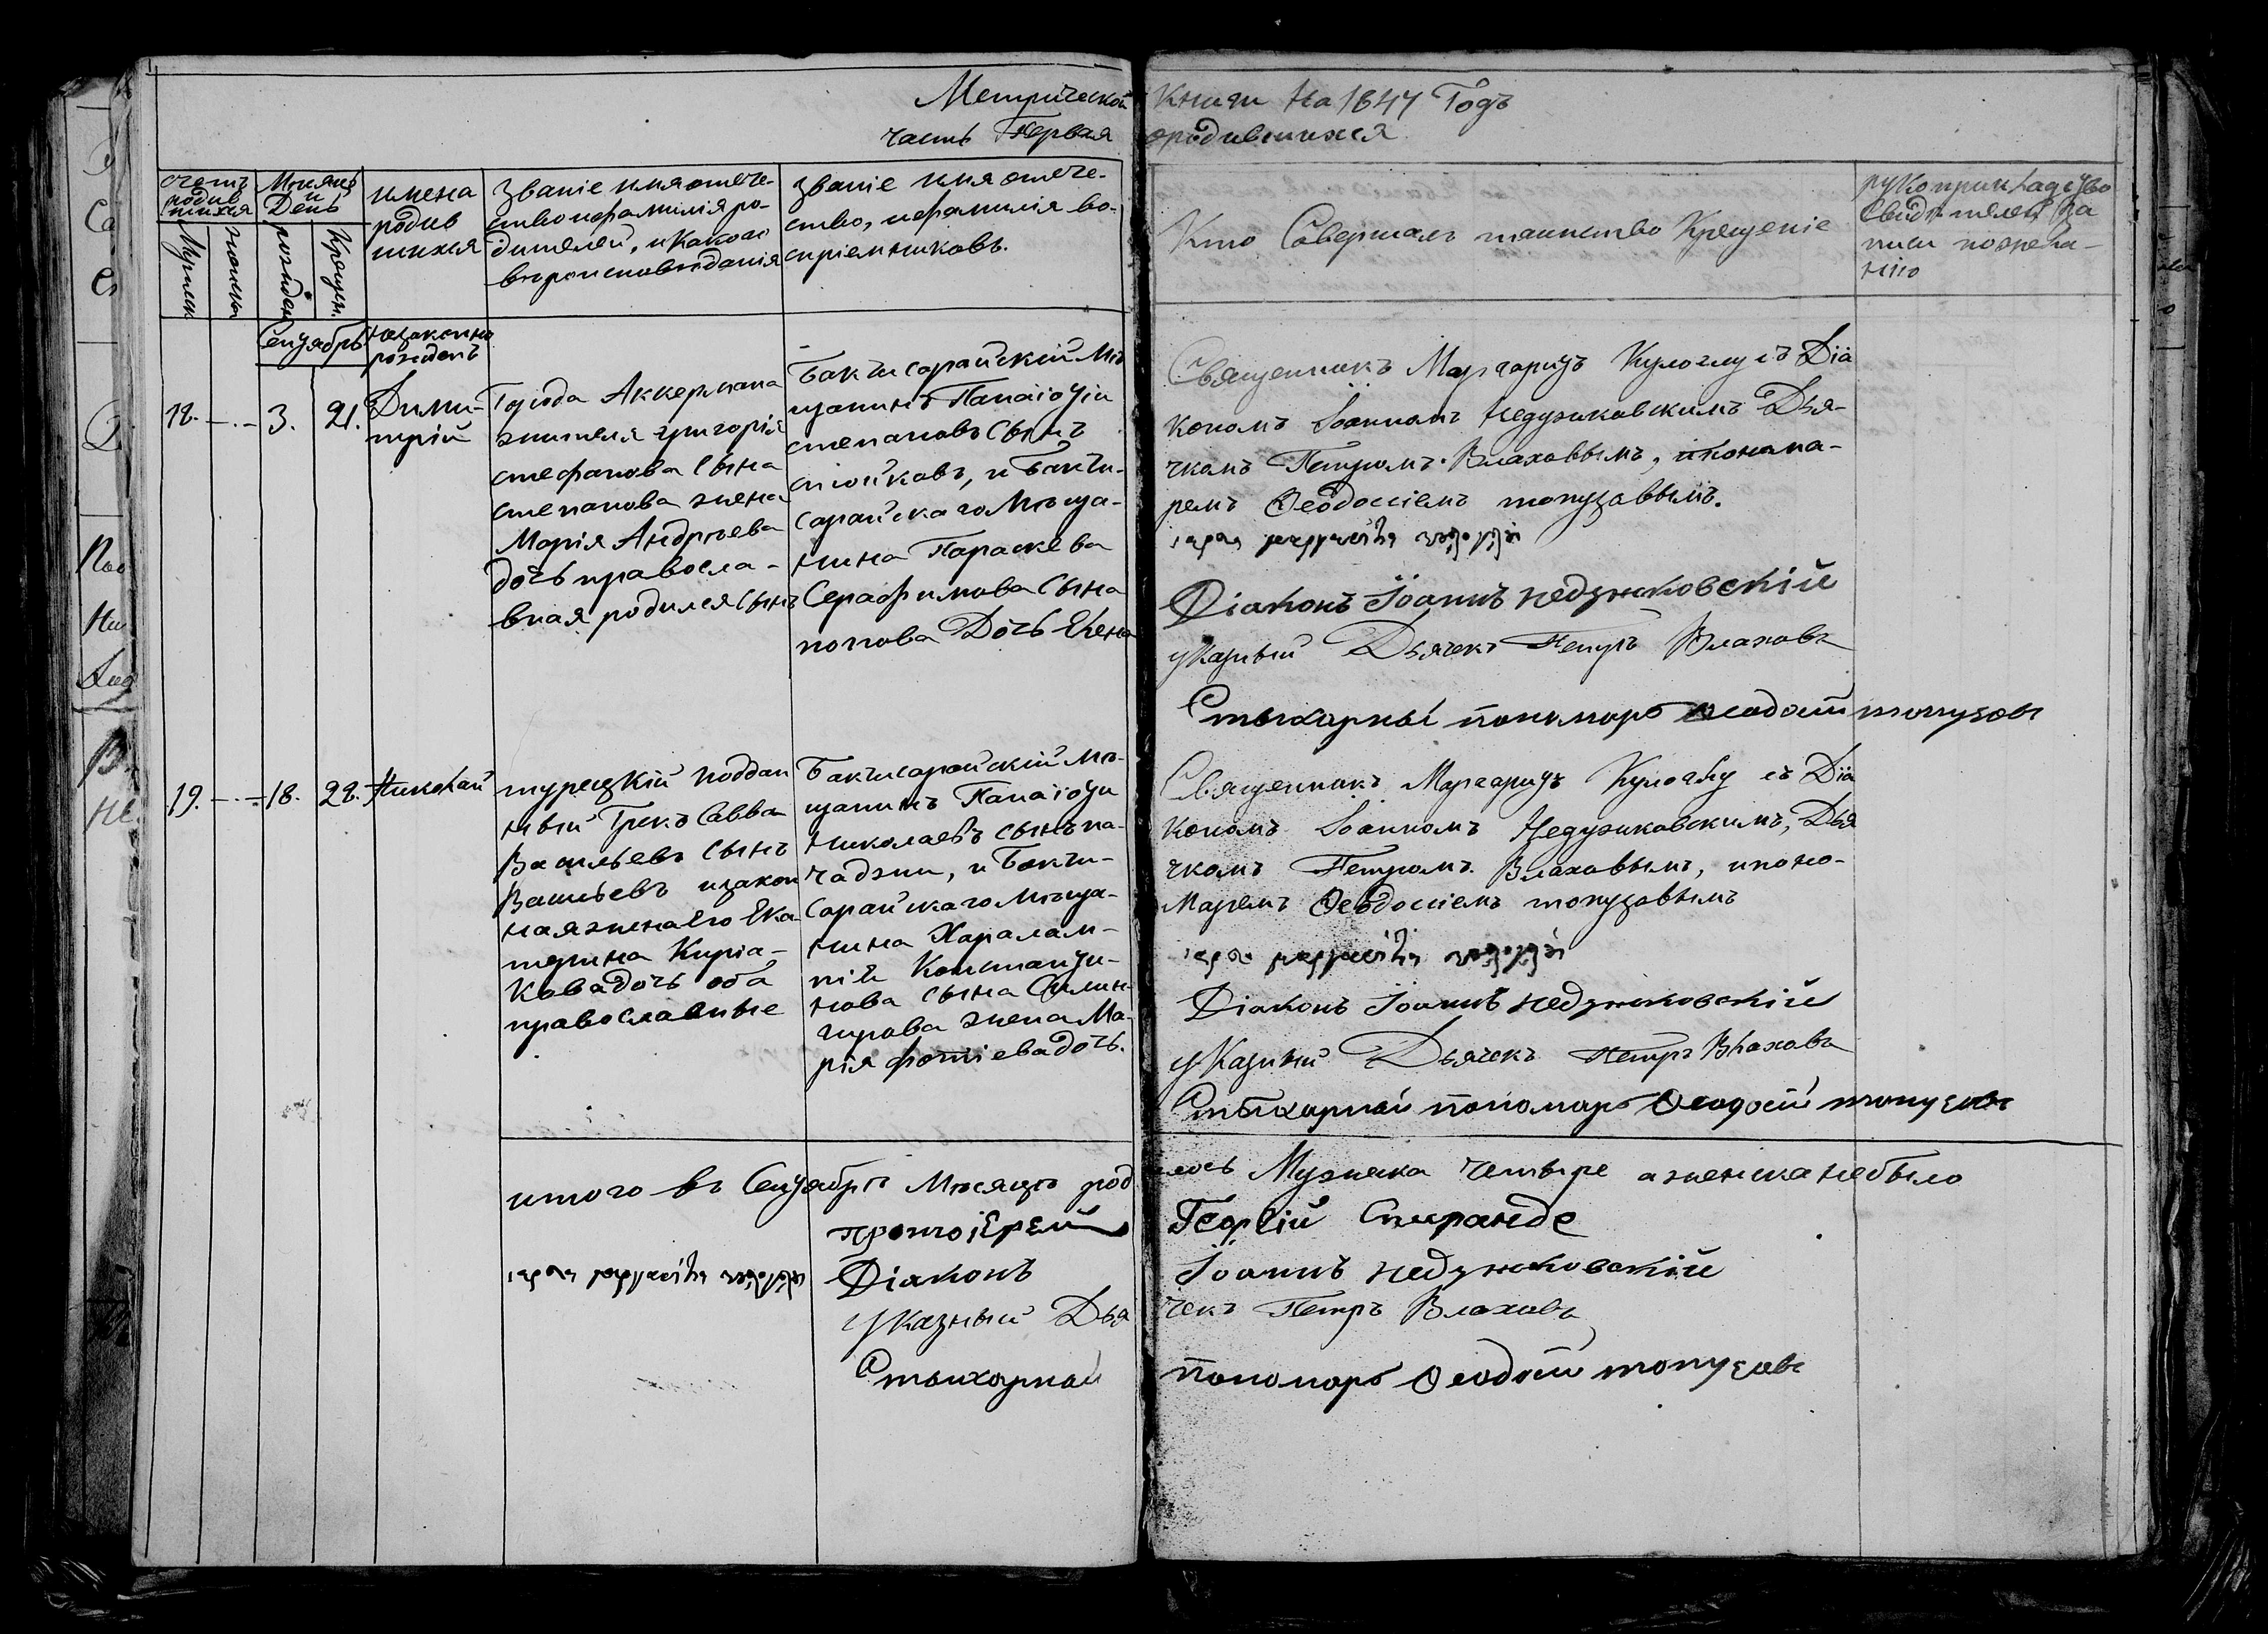 Метрической книги на 1847 Годъ
часть Первая о родившихся
счетъ родившихся
Мужеск
женск
Месяцъ и День
рожден
Крещен.
имена родившихся
Званіе имя отече-
ство и фамилія ро-
дителей, и какого
вероисповѣданія
званіе имя отече-
ство, и фамилія во-
спріемниковъ.
Кто Совершалъ таинство Крещеніе
рукоприкладство
свидѣтелей за
писи по жела-
нію
Сентябрь
незаконно
рожденъ
18.
3.
21.
Дими-
трій
Города Аккермана
жителя григорія
стефанова сына
степанова жена
Марія Андрѣева
дочь правосла-
вная родился сынъ
Бакчисарайскій мѣ-
щанинъ Панаіоти
степановъ сынъ
стойковъ, и Бакчи-
сарайскаго мѣща-
нина Параскева
Серафимова сына
попова Дочь Елена
Священникъ Маргаритъ Кулоглу съ Діа
кономъ Іоанномъ Недзиковскимъ Дья-
чкомъ Петромъ Влаховымъ, и понома-
ремъ Ѳеодосіемъ топузовымъ.
Діаконъ Іоаннъ недзиковскій
указный Дьячекъ Петръ Влаховъ
Стыхарный пономарь Ѳеодосій топузовъ
19.
18.
28.
Николай
турецкій поддан
ный Грекъ Савва
Васильевъ сынъ
Васильевъ изакон
ная жена его Ека-
терина Киріа-
кова дочь оба
православные
Бакчисарайскій мѣ-
щанинъ Панаіоти
николаевъ сынъ па-
чаджи, и Бакчи-
сарайскаго мѣща-
нина Харалам-
пій Константи-
нова сына
жена Ма-
рія фотіева дочь.
Священникъ Маргаритъ Кулоглу съ Діа
кономъ Іоанномъ Недзиковскимъ, Дья
чкомъ Петромъ Влаховымъ, и поно-
маремъ Ѳеодосіемъ топузовымъ
Діаконъ Іоаннъ недзиковскій
указный Дьячекъ Петръ Влаховъ
Стыхарный пономарь Ѳеодосій топузовъ
итого въ Сентябрѣ Мѣсяцѣ родилось Мужеска четыре а женска небыло
протоіерей Георгій Спиранде
Діаконъ Іоаннъ недзиковскій
указный Дьячекъ Петръ Влаховъ
Стыхарный пономарь Ѳеодосій топузовъ